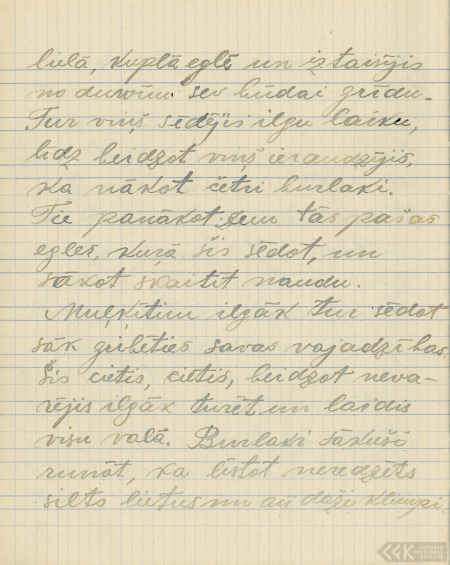 lielā, kuplā eglē un iztaisījis
no durvīm sev būdai grīdu.
Tur viņš sēdējis ilgu laiku,
līdz beidzot viņš ieraudzījis,
ka nākot četri burlaki.
Tie panākot zem tās pašas
egles, kurā šis sēdot, un
sākot skaitīt naudu.
Muļķītim ilgāk tur sēdot
sāk gribēties savas vajadzības.
Šis cietis, cietis, beidzot neva-
rējis ilgāk turēt un laidis
visu vaļā. Burlaki sākuši
runāt, ka līstot neredzēts
silts lietus un arī daži klimpi